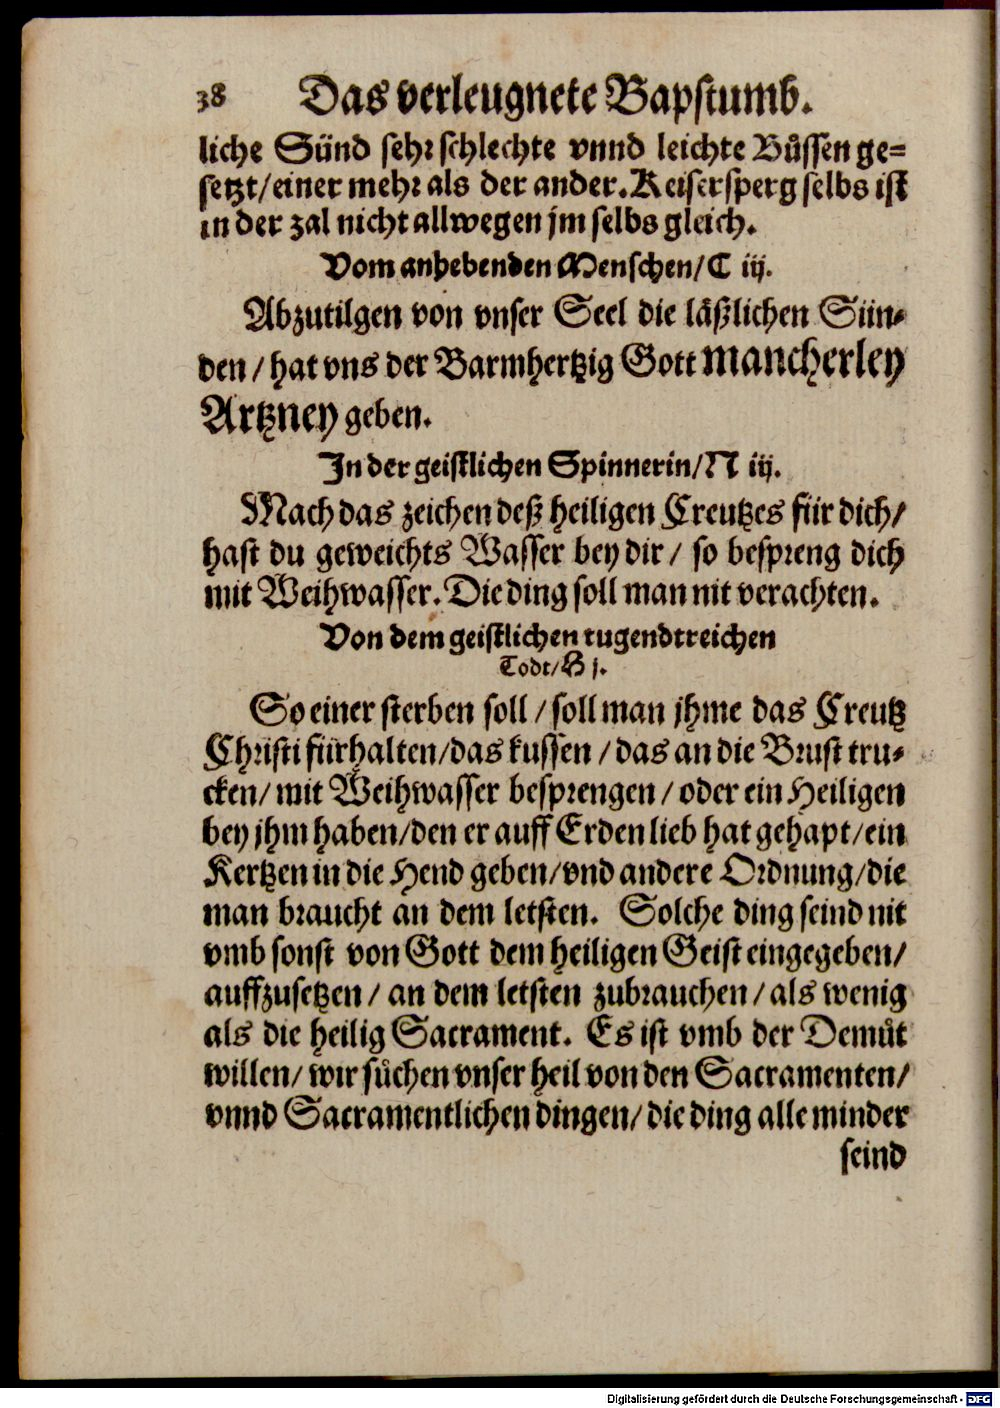 38 Das verleugnete Bapstumb.
liche Sünd sehr schlechte vnnd leichte Bůssen ge=
setzt/einer mehr als der ander. Keisersperg selbs ist
in der zal nicht allwegen jm selbs gleich.
Vom anhebenden Menschen/C iij.
Abzutilgen von vnser Seel die läßlichen Sün=
den/hat vns der Barmhertzig Gott mancherley
Artzney geben.
In der geistlichen Spinnerin/N iij.
Mach das zeichen deß heiligen Creutzes für dich/
hast du geweichts Wasser bey dir/ so bespreng dich
mit Weihwasser. Die ding soll man nit verachten.
Von dem geistlichen tugendtreichen
Todt/H j.
So einer sterben soll/soll man jhme das Creutz
Christi fürhalten/das kussen/das an die Brust tru=
cken/mit Weihwasser besprengen/oder ein Heiligen
bey jhm haben/den er auff Erden lieb hat gehapt/ein
Kertzen in die Hend geben/vnd andere Ordnung/die
man braucht an dem letsten. Solche ding seind nit
vmb sonst von Gott dem heiligen Geist eingegeben/
auffzusetzen/an dem letsten zubrauchen/als wenig
als die heilig Sacrament. Es ist vmb der Demůt
willen/wir sůchen vnser heil von den Sacramenten/
vnnd Sacramentlichen dingen/die ding alle minder
seind
Digitalisierung gefördert durch die Deutsche Forschungsgemeinschaft - DFG